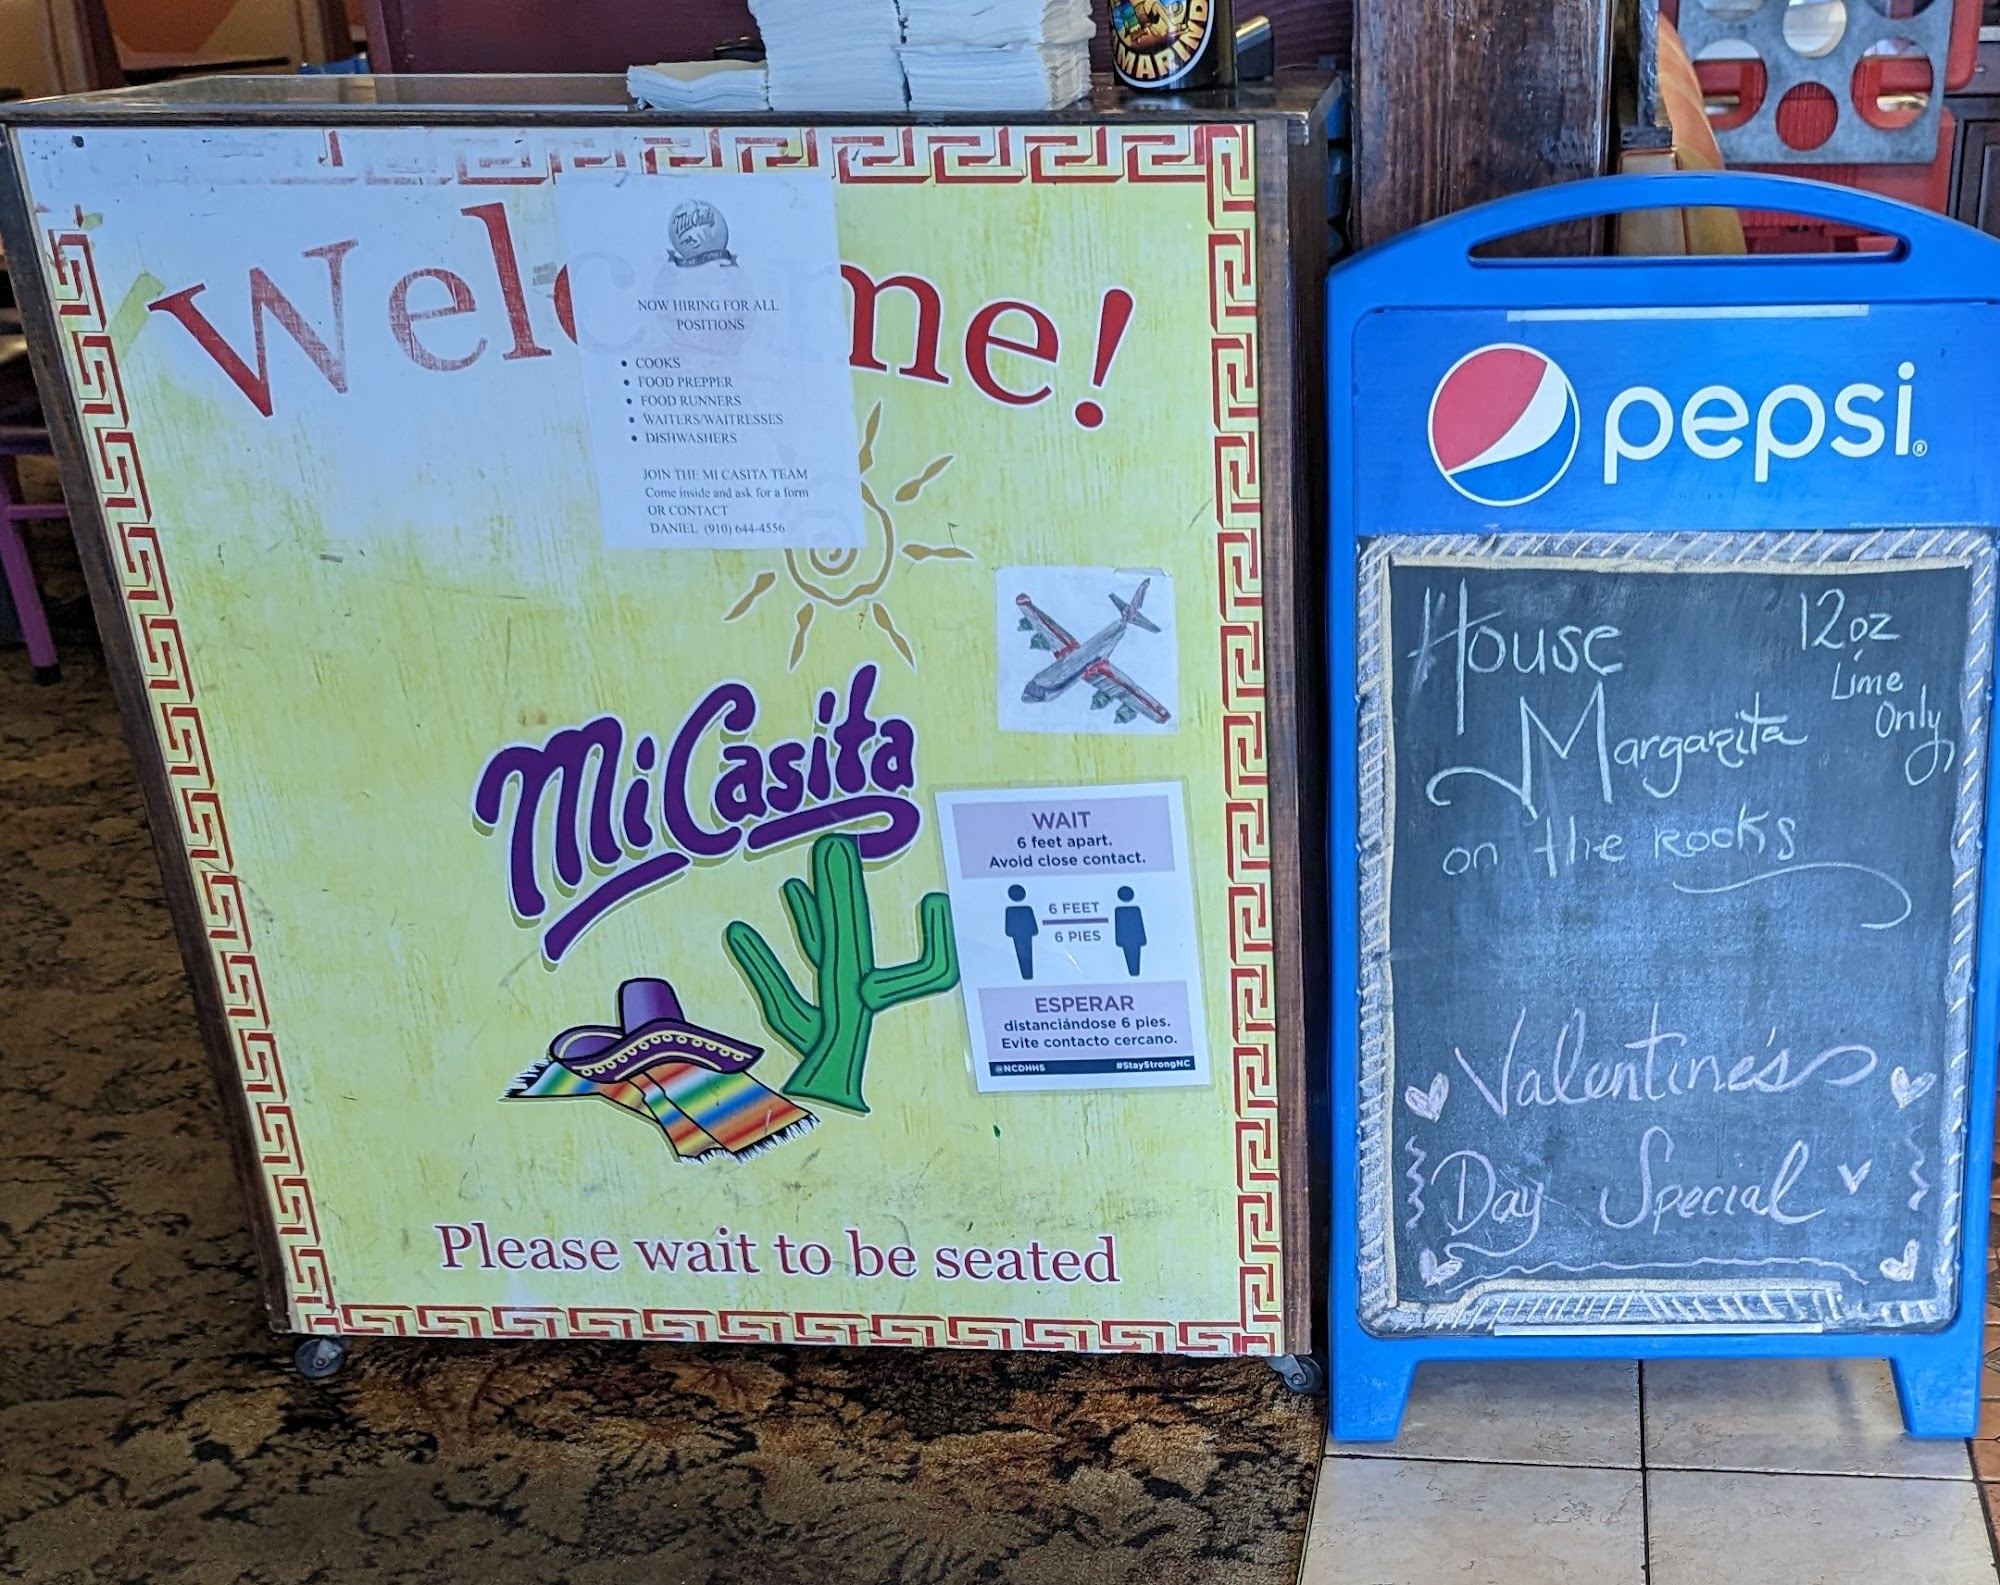 MARIND
Welcome!
Mi Casita
NOW HIRING FOR ALL
POSITIONS
• COOKS
• FOOD PREPPER
• FOOD RUNNERS
• WAITERS/WAITRESSES
• DISHWASHERS
JOIN THE MI CASITA TEAM
Come inside and ask for a form
OR CONTACT
DANIEL (910) 644-4556
Mi Casita
WAIT
6 feet apart.
Avoid close contact.
6 FEET
6 PIES
ESPERAR
distanciándose 6 pies.
Evite contacto cercano.
@NCDHHS #StayStrongNC
Please wait to be seated
pepsi®
House 12oz
Margarita Lime
on the Rocks Only
Valentine's
Day Special